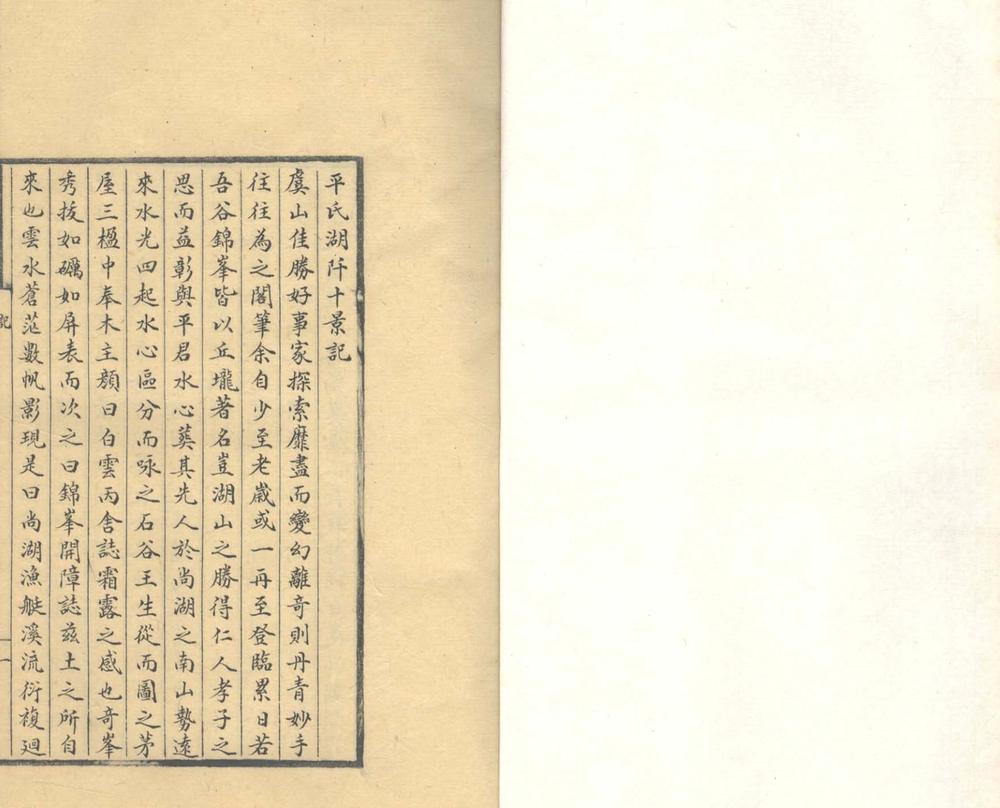 平氏湖阡十景記
虞山佳勝好事家探索靡盡而變幻離奇則丹青妙手
往往為之閣筆余自少至老歲或一再至登臨累日若
吾谷錦峯皆以丘壠著名豈湖山之勝得仁人孝子之
思而益彰與平君水心葬其先人於尚湖之南山勢遠
來水光四起水心區分而咏之石谷王生從而圖之茅
屋三楹中奉木主顏曰白雲丙舍誌霜露之感也奇峯
秀拔如礪如屏表而次之曰錦峯開障誌茲土之所自
來也雲水蒼茫數帆影現是曰尚湖漁艇溪流衍複迴
記
一